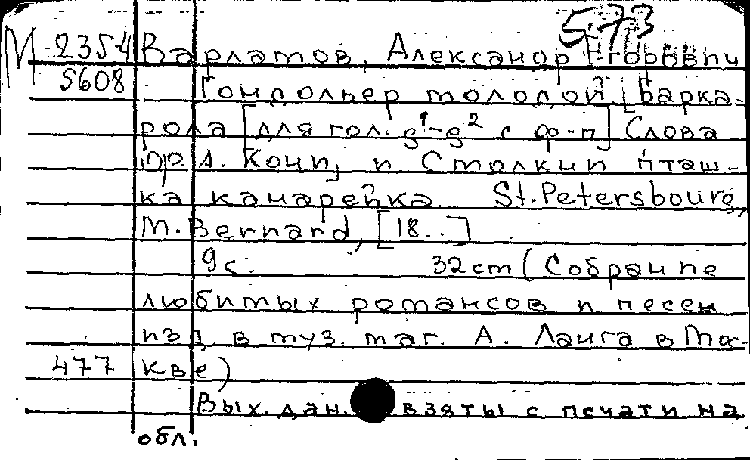 573
М 2354 Варламов, Александр Егорович
5608 Гондольер молодой [Барка-
рола [для гол. g¹-g² с ф-п] Слова
др. А. Конц, и Столкин пташ-
ка канарейка. St. Petersbourg,
M. Bernard, [18..]
9 с. 32 cm (Собрание
любимых романсов и песен
изд. в муз. маг. А. Ланга в Мос-
477 кве)
Вых. дан. взяты с печати на
обл.